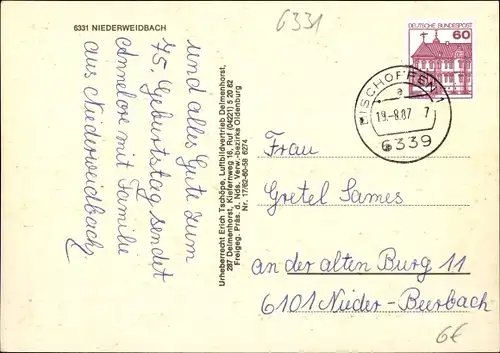 6331 NIEDERWEIDBACH
und alles Gute zum
75. Geburtstag sendet
Annelore mit Familie
aus Niederweidbach
Urheberrecht Erich Tschöpe, Luftbildvertrieb Delmenhorst,
287 Delmenhorst, Kiefernweg 16, Ruf (04221) 5 20 82
Freigeg. Präs. d. Nds. Verw.-bezirks Oldenburg
Nr. 17/62-60-58 6274
6331
DEUTSCHE BUNDESPOST
60
BISCHOFFEN 1
a
19.-8.87 7
6339
Frau
Gretel Sames
an der alten Burg 11
6101 Nieder-Beerbach
6€